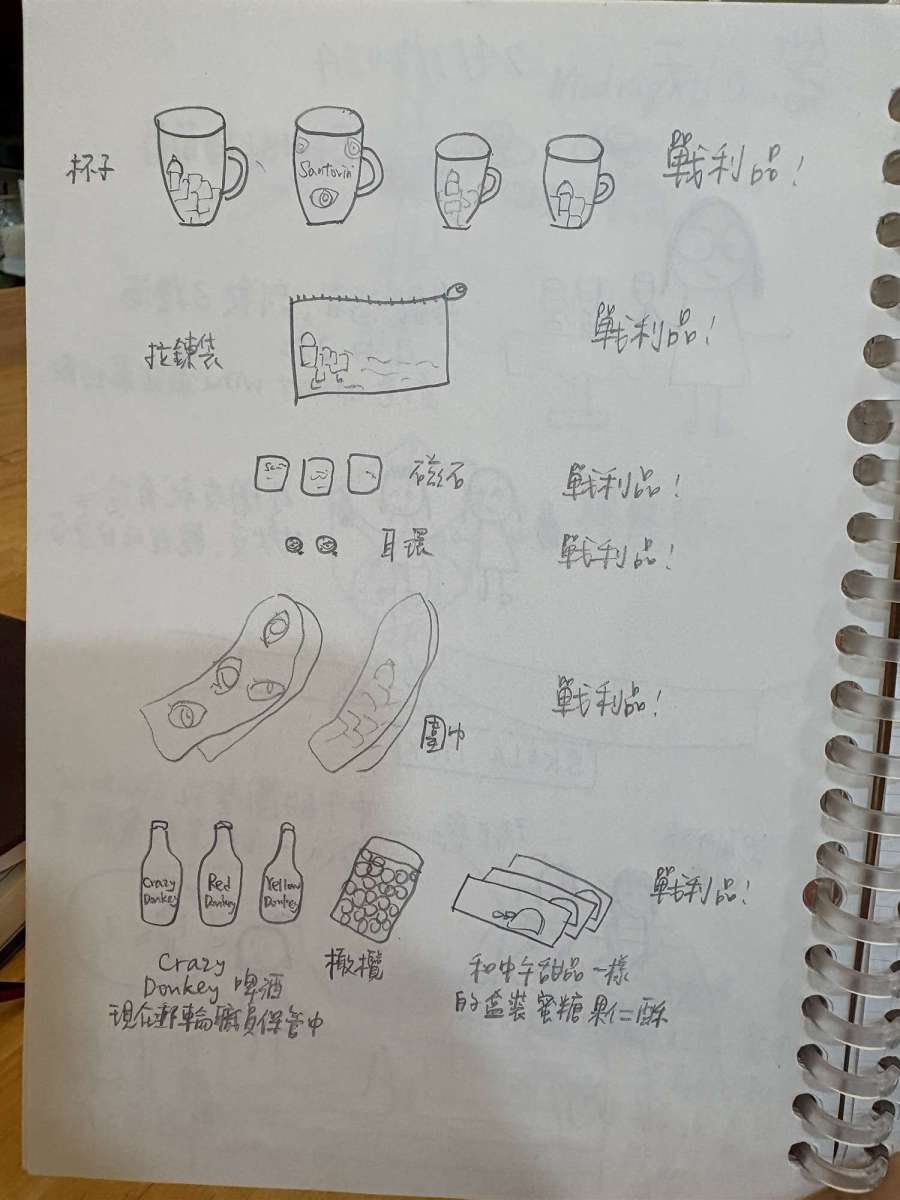 杯子
Santorini
戰利品！
拉鍊袋
戰利品！
磁石
戰利品！
耳環
戰利品！
圍巾
戰利品！
Crazy
Donkey
Red
Donkey
Yellow
Donkey
戰利品！
Crazy
Donkey 啤酒
現在郵輪職員保管中
橄欖
和中午甜品一樣
的盒裝蜜糖果仁酥